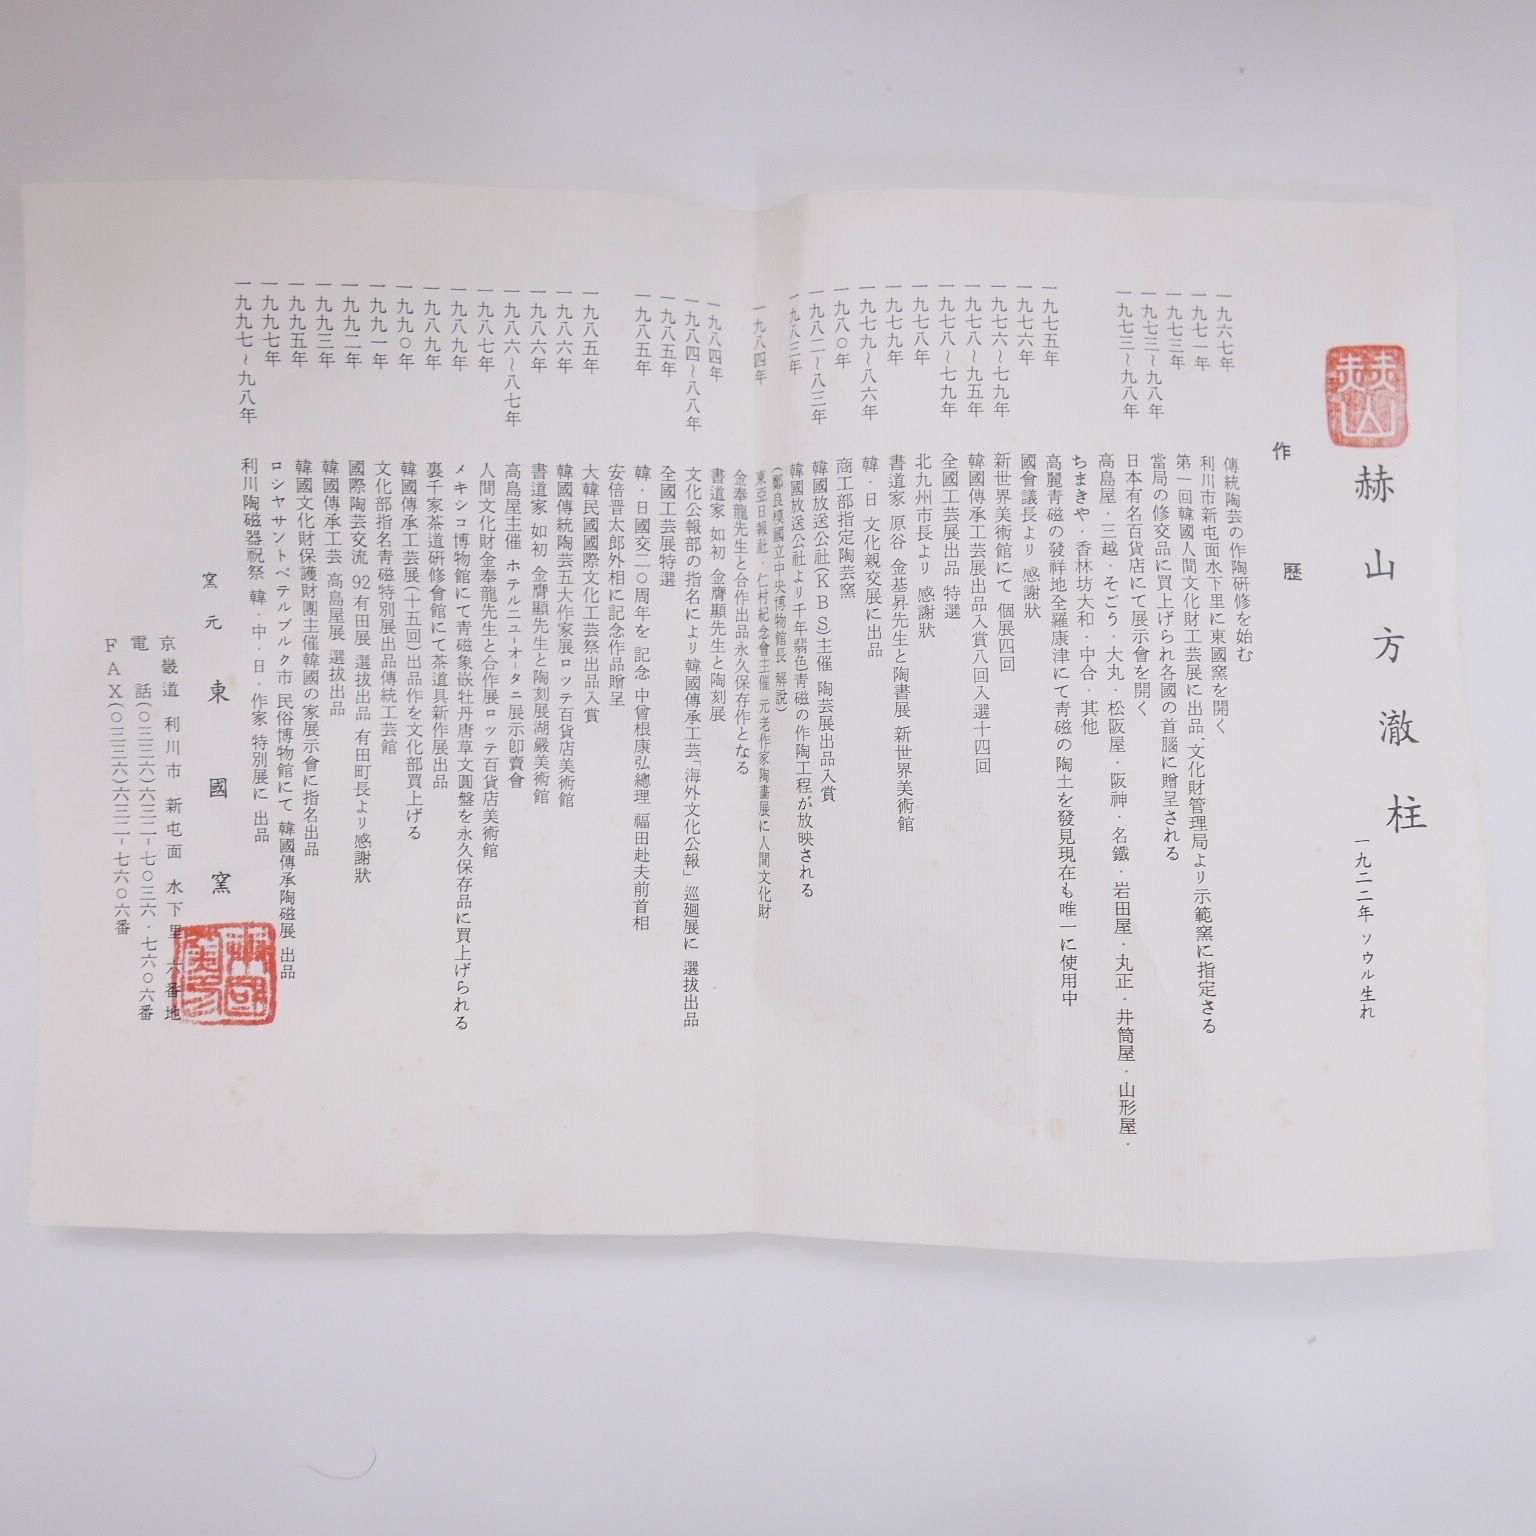 赫山
赫山方澈柱
一九二二年 ソウル生れ
作歷
一九六七年 傳統陶芸の作陶研修を始む
一九七一年 利川市新屯面水下里に東國窯を開く
一九七三年 第一回韓國人間文化財工芸展に出品.文化財管理局より示範窯に指定さる
一九七三～九八年 當局の修交品に買上げられ各國の首腦に贈呈される
一九七三～九八年 日本有名百貨店にて展示會を開く
高島屋・三越・そごう・大丸・松阪屋・阪神・名鐵・岩田屋・丸正・井筒屋・山形屋・
ちまきや・香林坊大和・中合・其他
一九七五年 高麗靑磁の發祥地全羅康津にて靑磁の陶土を發見現在も唯一に使用中
一九七六年 國會議長より 感謝狀
一九七六～七九年 新世界美術館にて 個展四回
一九七八～九五年 韓國傳承工芸展出品入賞八回入選十四回
一九七八～七九年 全國工芸展出品 特選
一九七八年 北九州市長より 感謝狀
一九七九年 書道家 原谷 金基昇先生と陶書展 新世界美術館
一九七九～八六年 韓・日 文化親交展に出品
一九八〇年 商工部指定陶芸窯
一九八二～八三年 韓國放送公社(KBS)主催 陶芸展出品入賞
一九八三年 韓國放送公社より千年翡色靑磁の作陶工程が放映される
(鄭良模國立中央博物館長 解說)
一九八四年 東亞日報社・仁村紀念會主催 元老作家陶畵展に人間文化財
金奉龍先生と合作出品永久保存作となる
一九八四年 書道家 如初 金膺顯先生と陶刻展
一九八四～八八年 文化公報部の指名により韓國傳承工芸「海外文化公報」巡廻展に 選拔出品
一九八五年 全國工芸展特選
一九八五年 韓・日國交二〇周年を 記念 中曾根康弘總理 福田赳夫前首相
安倍晋太郎外相に記念作品贈呈
一九八五年 大韓民國國際文化工芸祭出品入賞
一九八六年 韓國傳統陶芸五大作家展ロッテ百貨店美術館
一九八六年 書道家 如初 金膺顯先生と陶刻展湖嚴美術館
一九八六～八七年 高島屋主催 ホテルニューオータニ 展示卽賣會
一九八七年 人間文化財金奉龍先生と合作展ロッテ百貨店美術館
一九八九年 メキシコ博物館にて靑磁象嵌牡丹唐草文圓盤を永久保存品に買上げられる
一九八九年 裏千家茶道硏修會館にて茶道具新作展出品
一九九〇年 韓國傳承工芸展(十五回)出品作を文化部買上げる
一九九一年 文化部指名靑磁特別展出品傳統工芸館
一九九二年 國際陶芸交流 92有田展 選拔出品 有田町長より感謝狀
一九九三年 韓國傳承工芸 高島屋展 選拔出品
一九九五年 韓國文化財保護財團主催韓國の家展示會に指名出品
一九九七年 ロシヤサントペテルブルク市 民俗博物館にて 韓國傳承陶磁展 出品
一九九七～九八年 利川陶磁器祝祭 韓・中・日・作家 特別展に 出品
窯元 東國窯
京畿道 利川市 新屯面 水下里 六番地
電 話(〇三三六)六三二-七〇三六・七六〇六番
FAX(〇三三六)六三二-七六〇六番